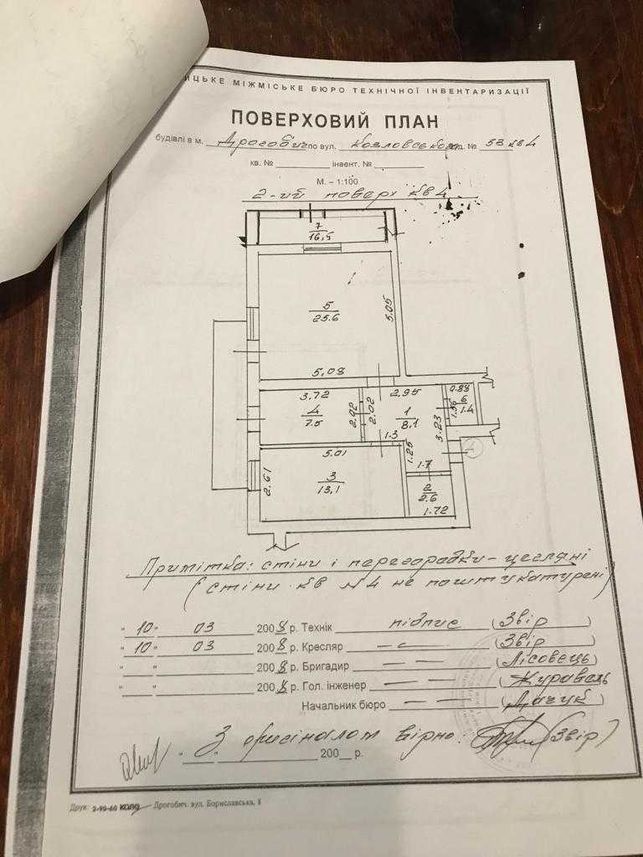 ИЦЬКЕ МІЖМІСЬКЕ БЮРО ТЕХНІЧНОЇ ІНВЕНТАРИЗАЦІЇ
ПОВЕРХОВИЙ ПЛАН
будівлі в м. Дрогобич по вул. Козловського буд. № 53 кв 4
кв. № інвент. №
М. – 1:100
2-ий поверх кв 4
7
16,5
5
25.6
5.05
5,08
3,72
2,95
0.88
4
7.5
2,02
2,02
1
8,1
3,23
6
1.4
1.3
5.01
1.25
1.7
2,61
3
13,1
2
2.6
1.72
Примітка: стіни і перегородки - цегляні
(стіни кв №4 не поштукатурені)
" 10 " 03 200 8 р. Технік підпис (Звір)
" 10 " 03 200 8 р. Кресляр — " — (Звір)
" " 200 8 р. Бригадир — " — (Лісовець)
" " 200 8 р. Гол. інженер — " — (Журавель
Начальник бюро — " — (Дачук)
З оригіналом вірно: (Звір)
" " 200 р.
Друк. 2-99-60 КОЛО Дрогобич. вул. Бориславська, 8